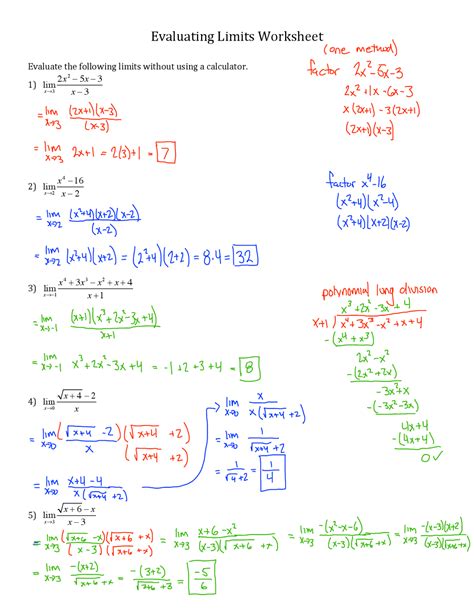 Evaluating Limits Worksheet
(one method)
Evaluate the following limits without using a calculator.
factor 2x²-5x-3
2x²+1x-6x-3
x(2x+1)-3(2x+1)
(2x+1)(x-3)
1) lim x→3 (2x²-5x-3)/(x-3)
= lim x→3 (2x+1)(x-3)/(x-3)
= lim x→3 2x+1 = 2(3)+1 = 7
2) lim x→2 (x⁴-16)/(x-2)
factor x⁴-16
(x²+4)(x²-4)
(x²+4)(x+2)(x-2)
= lim x→2 (x²+4)(x+2)(x-2)/(x-2)
= lim x→2 (x²+4)(x+2) = (2²+4)(2+2) = 8·4 = 32
3) lim x→-1 (x⁴+3x³-x²+x+4)/(x+1)
polynomial long division
x³+2x²-3x+4
x+1 x⁴+3x³-x²+x+4
-(x⁴+x³)
2x³-x²
-(2x³+2x²)
-3x²+x
-(-3x²-3x)
4x+4
-(4x+4)
0✓
= lim x→-1 (x+1)(x³+2x²-3x+4)/(x+1)
= lim x→-1 x³+2x²-3x+4 = -1+2+3+4 = 8
4) lim x→0 (√(x+4)-2)/x
= lim x→0 (√(x+4)-2)/x (√(x+4)+2)/(√(x+4)+2)
= lim x→0 (x+4-4)/(x(√(x+4)+2))
lim x→0 x/(x(√(x+4)+2))
= lim x→0 1/(√(x+4)+2)
= 1/(√4+2) = 1/4
5) lim x→3 (√(x+6)-x)/(x-3)
= lim x→3 (√(x+6)-x)(√(x+6)+x)/((x-3)(√(x+6)+x)) = lim x→3 (x+6-x²)/((x-3)(√(x+6)+x)) = lim x→3 -(x²-x-6)/((x-3)(√(x+6)+x)) = lim x→3 -(x-3)(x+2)/((x-3)(√(x+6)+x))
= lim x→3 -(x+2)/(√(x+6)+x) = -(3+2)/(√(3+6)+3) = -5/6